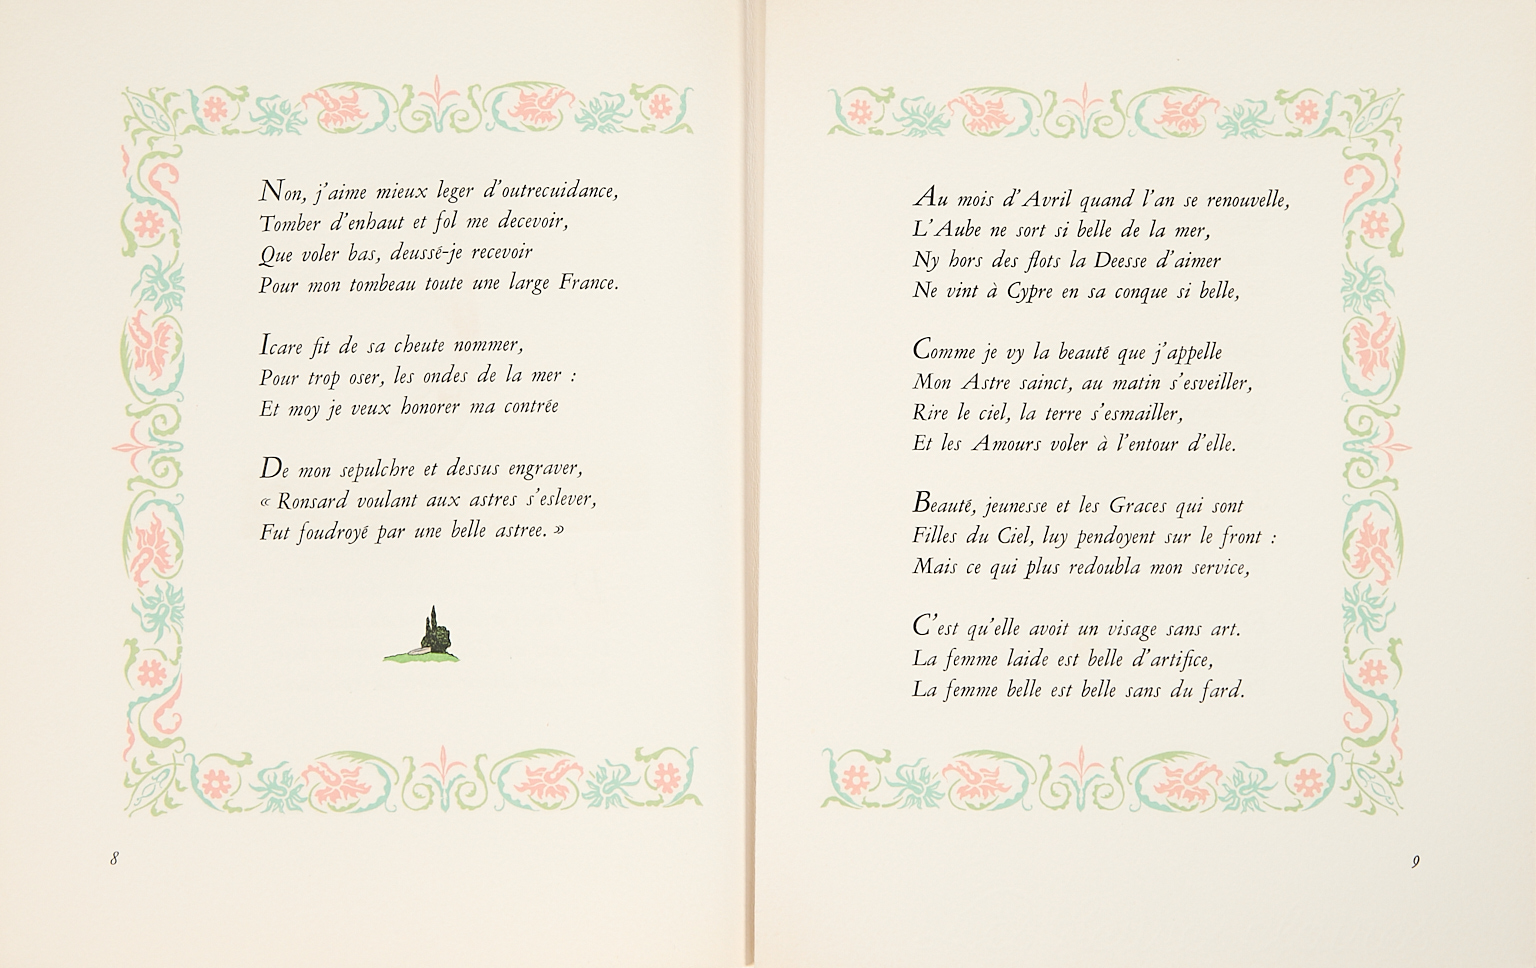 Non, j'aime mieux leger d'outrecuidance,
Tomber d'enhaut et fol me decevoir,
Que voler bas, deussé-je recevoir
Pour mon tombeau toute une large France.
Icare fit de sa cheute nommer,
Pour trop oser, les ondes de la mer :
Et moy je veux honorer ma contrée
De mon sepulchre et dessus engraver,
« Ronsard voulant aux astres s'eslever,
Fut foudroyé par une belle astree. »
8
Au mois d'Avril quand l'an se renouvelle,
L'Aube ne sort si belle de la mer,
Ny hors des flots la Deesse d'aimer
Ne vint à Cypre en sa conque si belle,
Comme je vy la beauté que j'appelle
Mon Astre sainct, au matin s'esveiller,
Rire le ciel, la terre s'esmailler,
Et les Amours voler à l'entour d'elle.
Beauté, jeunesse et les Graces qui sont
Filles du Ciel, luy pendoyent sur le front :
Mais ce qui plus redoubla mon service,
C'est qu'elle avoit un visage sans art.
La femme laide est belle d'artifice,
La femme belle est belle sans du fard.
9